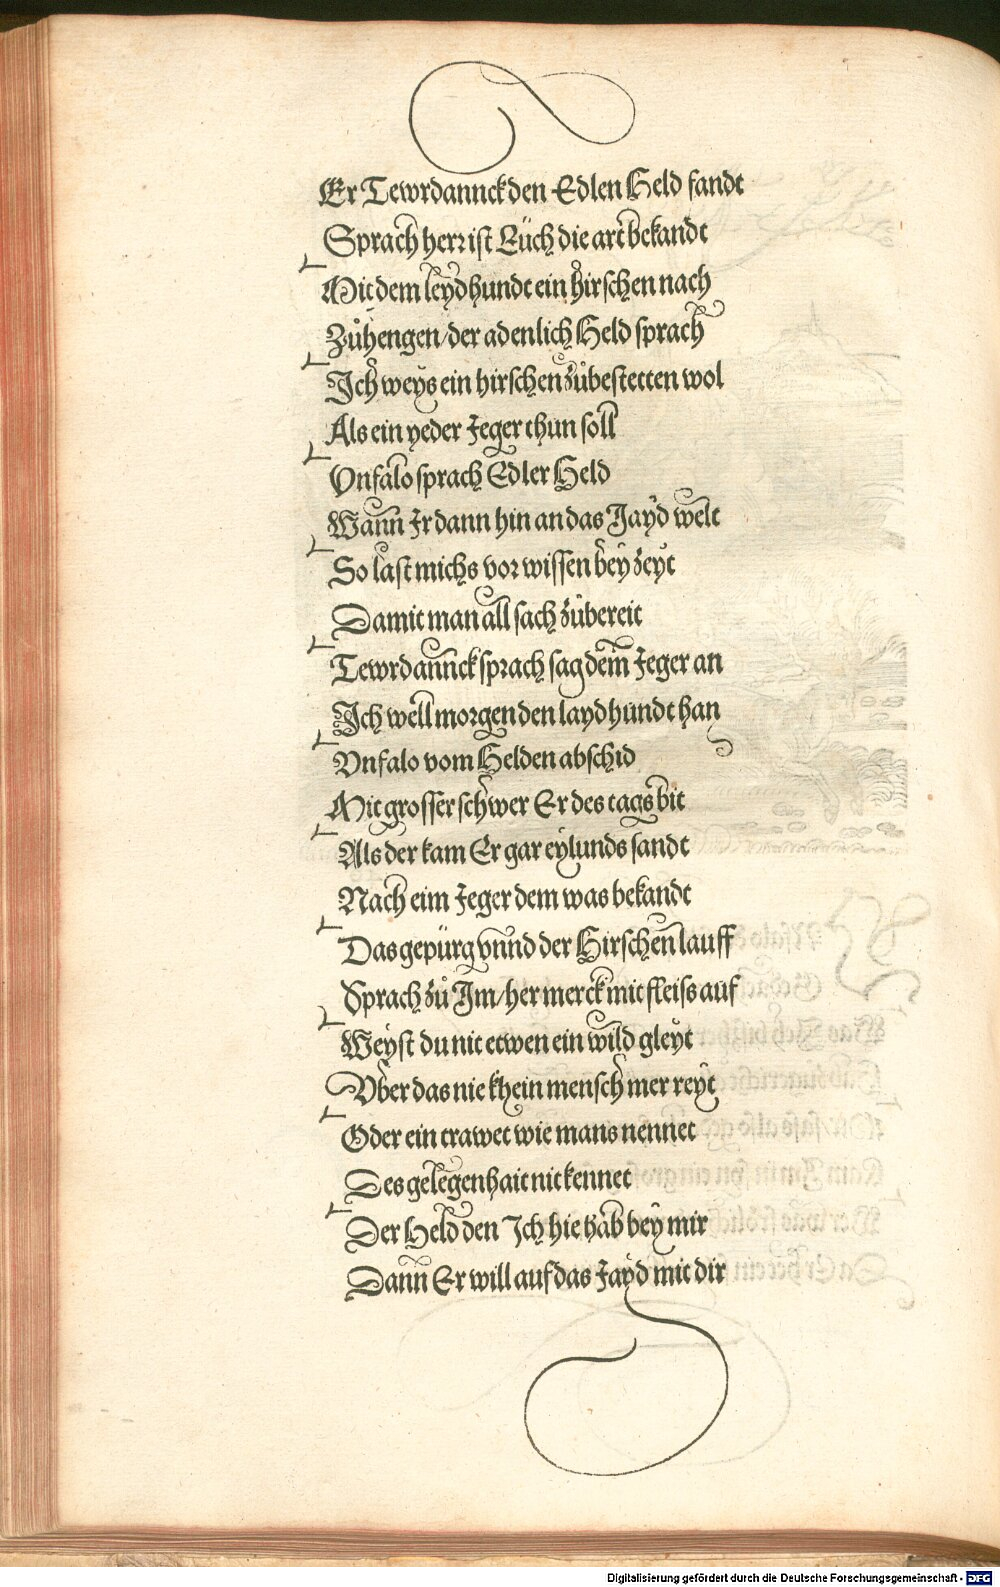 Er Tewrdannck den Edlen Held fandt
Sprach herr ist Euch die art bekandt
Mit dem leydhundt ein hirschen nach
Zůhengen/der adenlich Held sprach
Ich weys ein hirschen zůbestetten wol
Als ein yeder Jeger thun soll
Vnfalo sprach Edler Held
Wann Ir dann hin an das Jayd welt
So last michs vor wissen bey zeyt
Damit man all sach zůbereit
Tewrdannck sprach sag deim Jeger an
Ich well morgen den laydhundt han
Vnfalo vom Helden abschid
Mit grosser schwer Er des tags bit
Als der kam Er gar eylunds sandt
Nach eim Jeger dem was bekandt
Das gepürg vnnd der Hirschen lauff
Sprach zů Im/her merck mit fleiss auf
Weyst du nit etwen ein wild gleyt
Vber das nie khein mensch mer reyt
Oder ein trawet wie mans nennet
Des gelegenhait nit kennet
Der Held den Ich hie hab bey mir
Dann Er will auf das Jayd mit dir
Digitalisierung gefördert durch die Deutsche Forschungsgemeinschaft - DFG